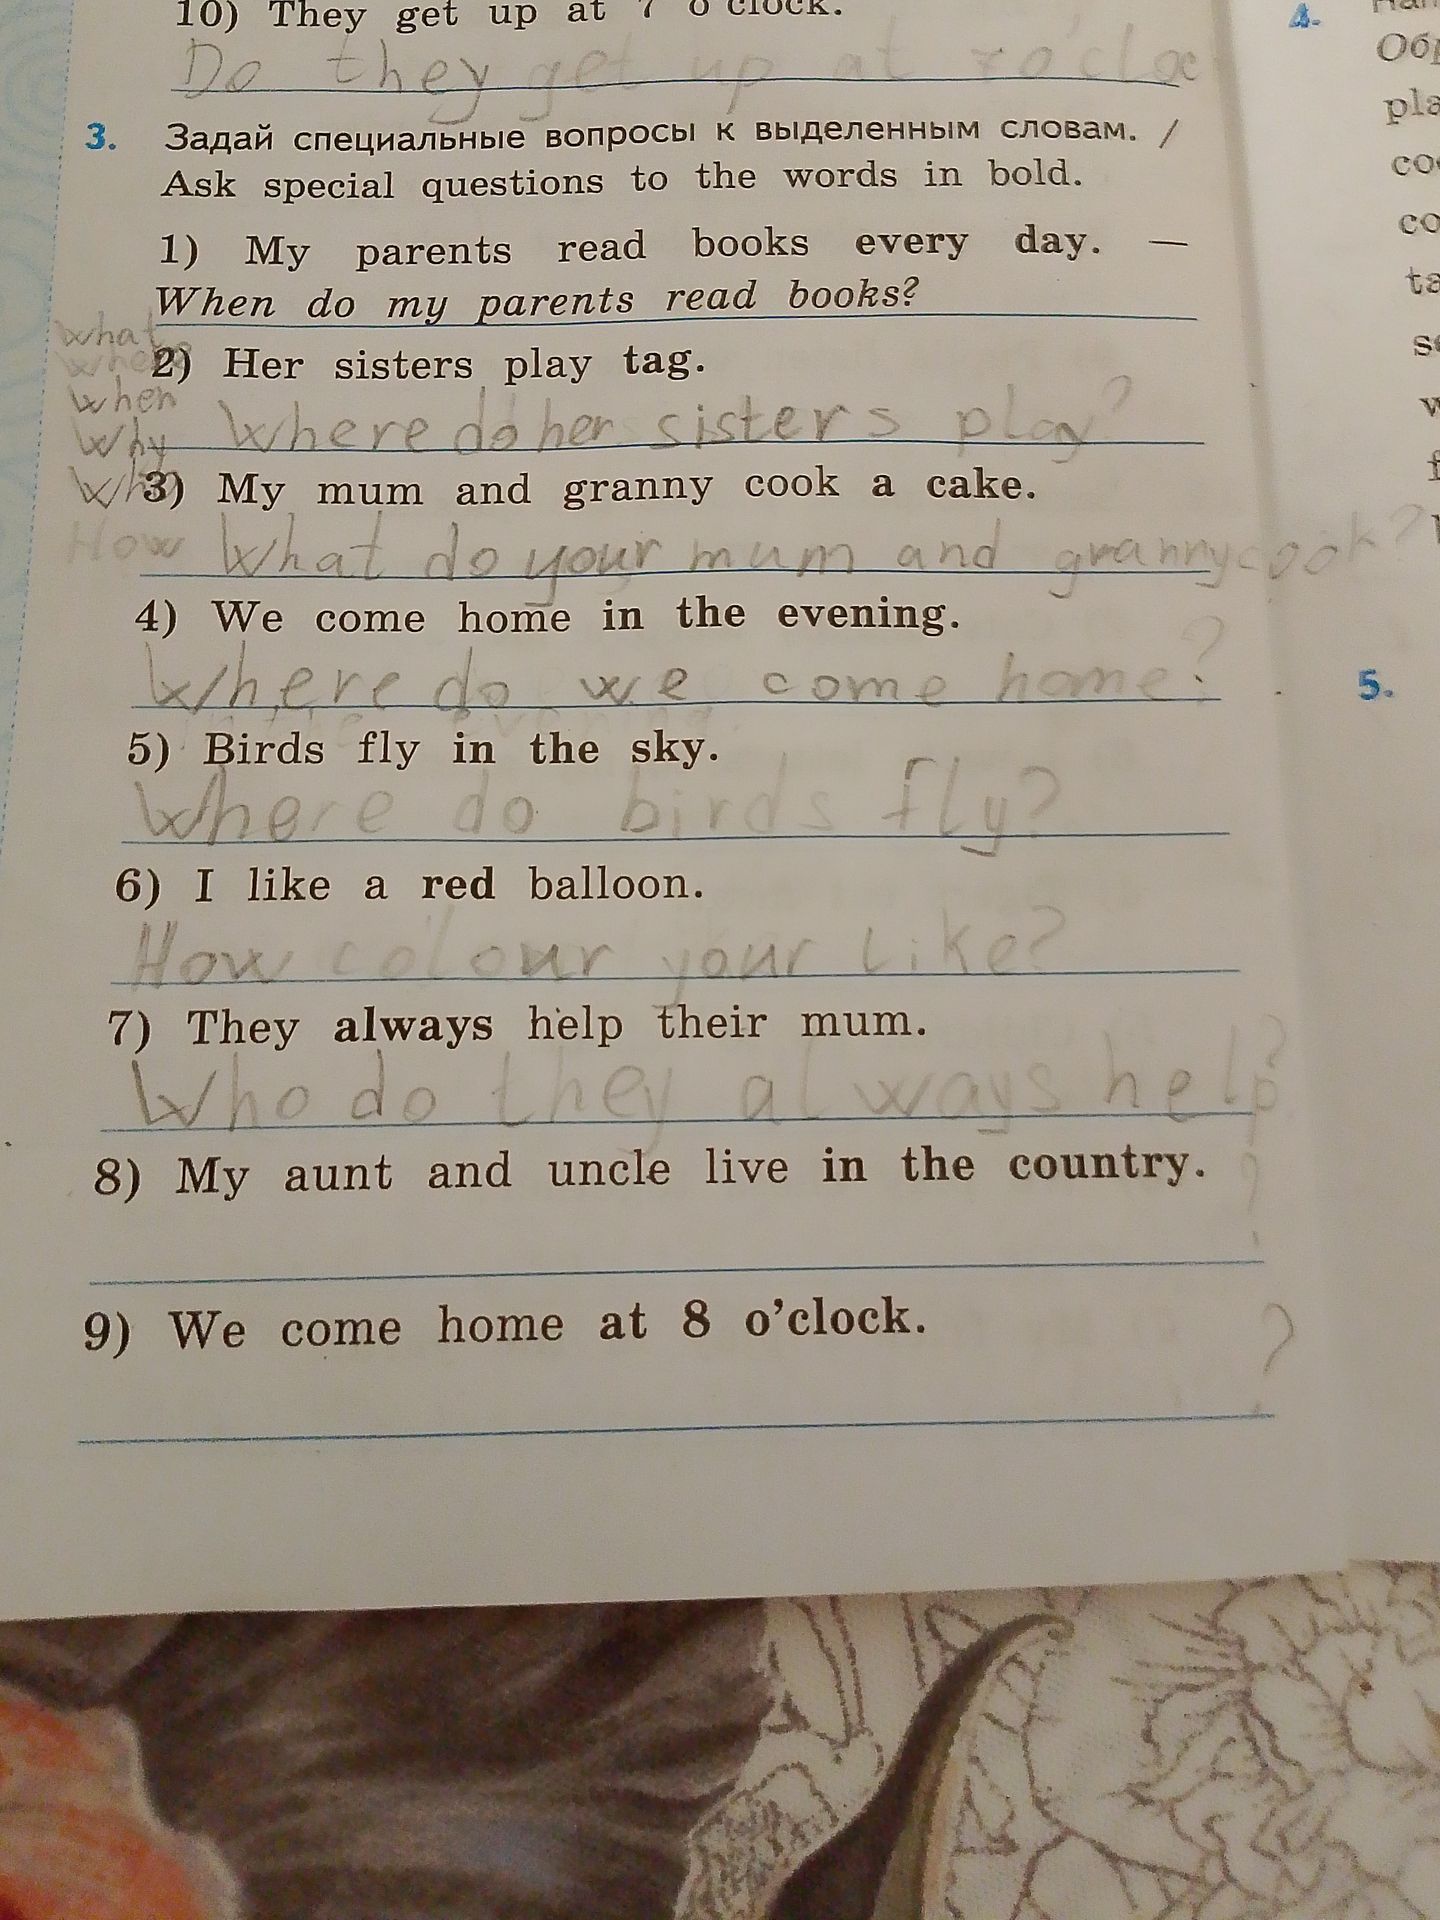 10) They get up at 7 o'clock.
Do they get up at 7 o'cloc
3. Задай специальные вопросы к выделенным словам. /
Ask special questions to the words in bold.
1) My parents read books every day. —
When do my parents read books?
What
Where
2) Her sisters play tag.
When
Where do her sisters play?
Why
Who
3) My mum and granny cook a cake.
How
What do your mum and granny cook?
4) We come home in the evening.
Where do we come home?
5) Birds fly in the sky.
Where do birds fly?
6) I like a red balloon.
How colour your like?
7) They always help their mum.
Who do they always help?
8) My aunt and uncle live in the country.
?
9) We come home at 8 o'clock.
?
4.
pla
5.